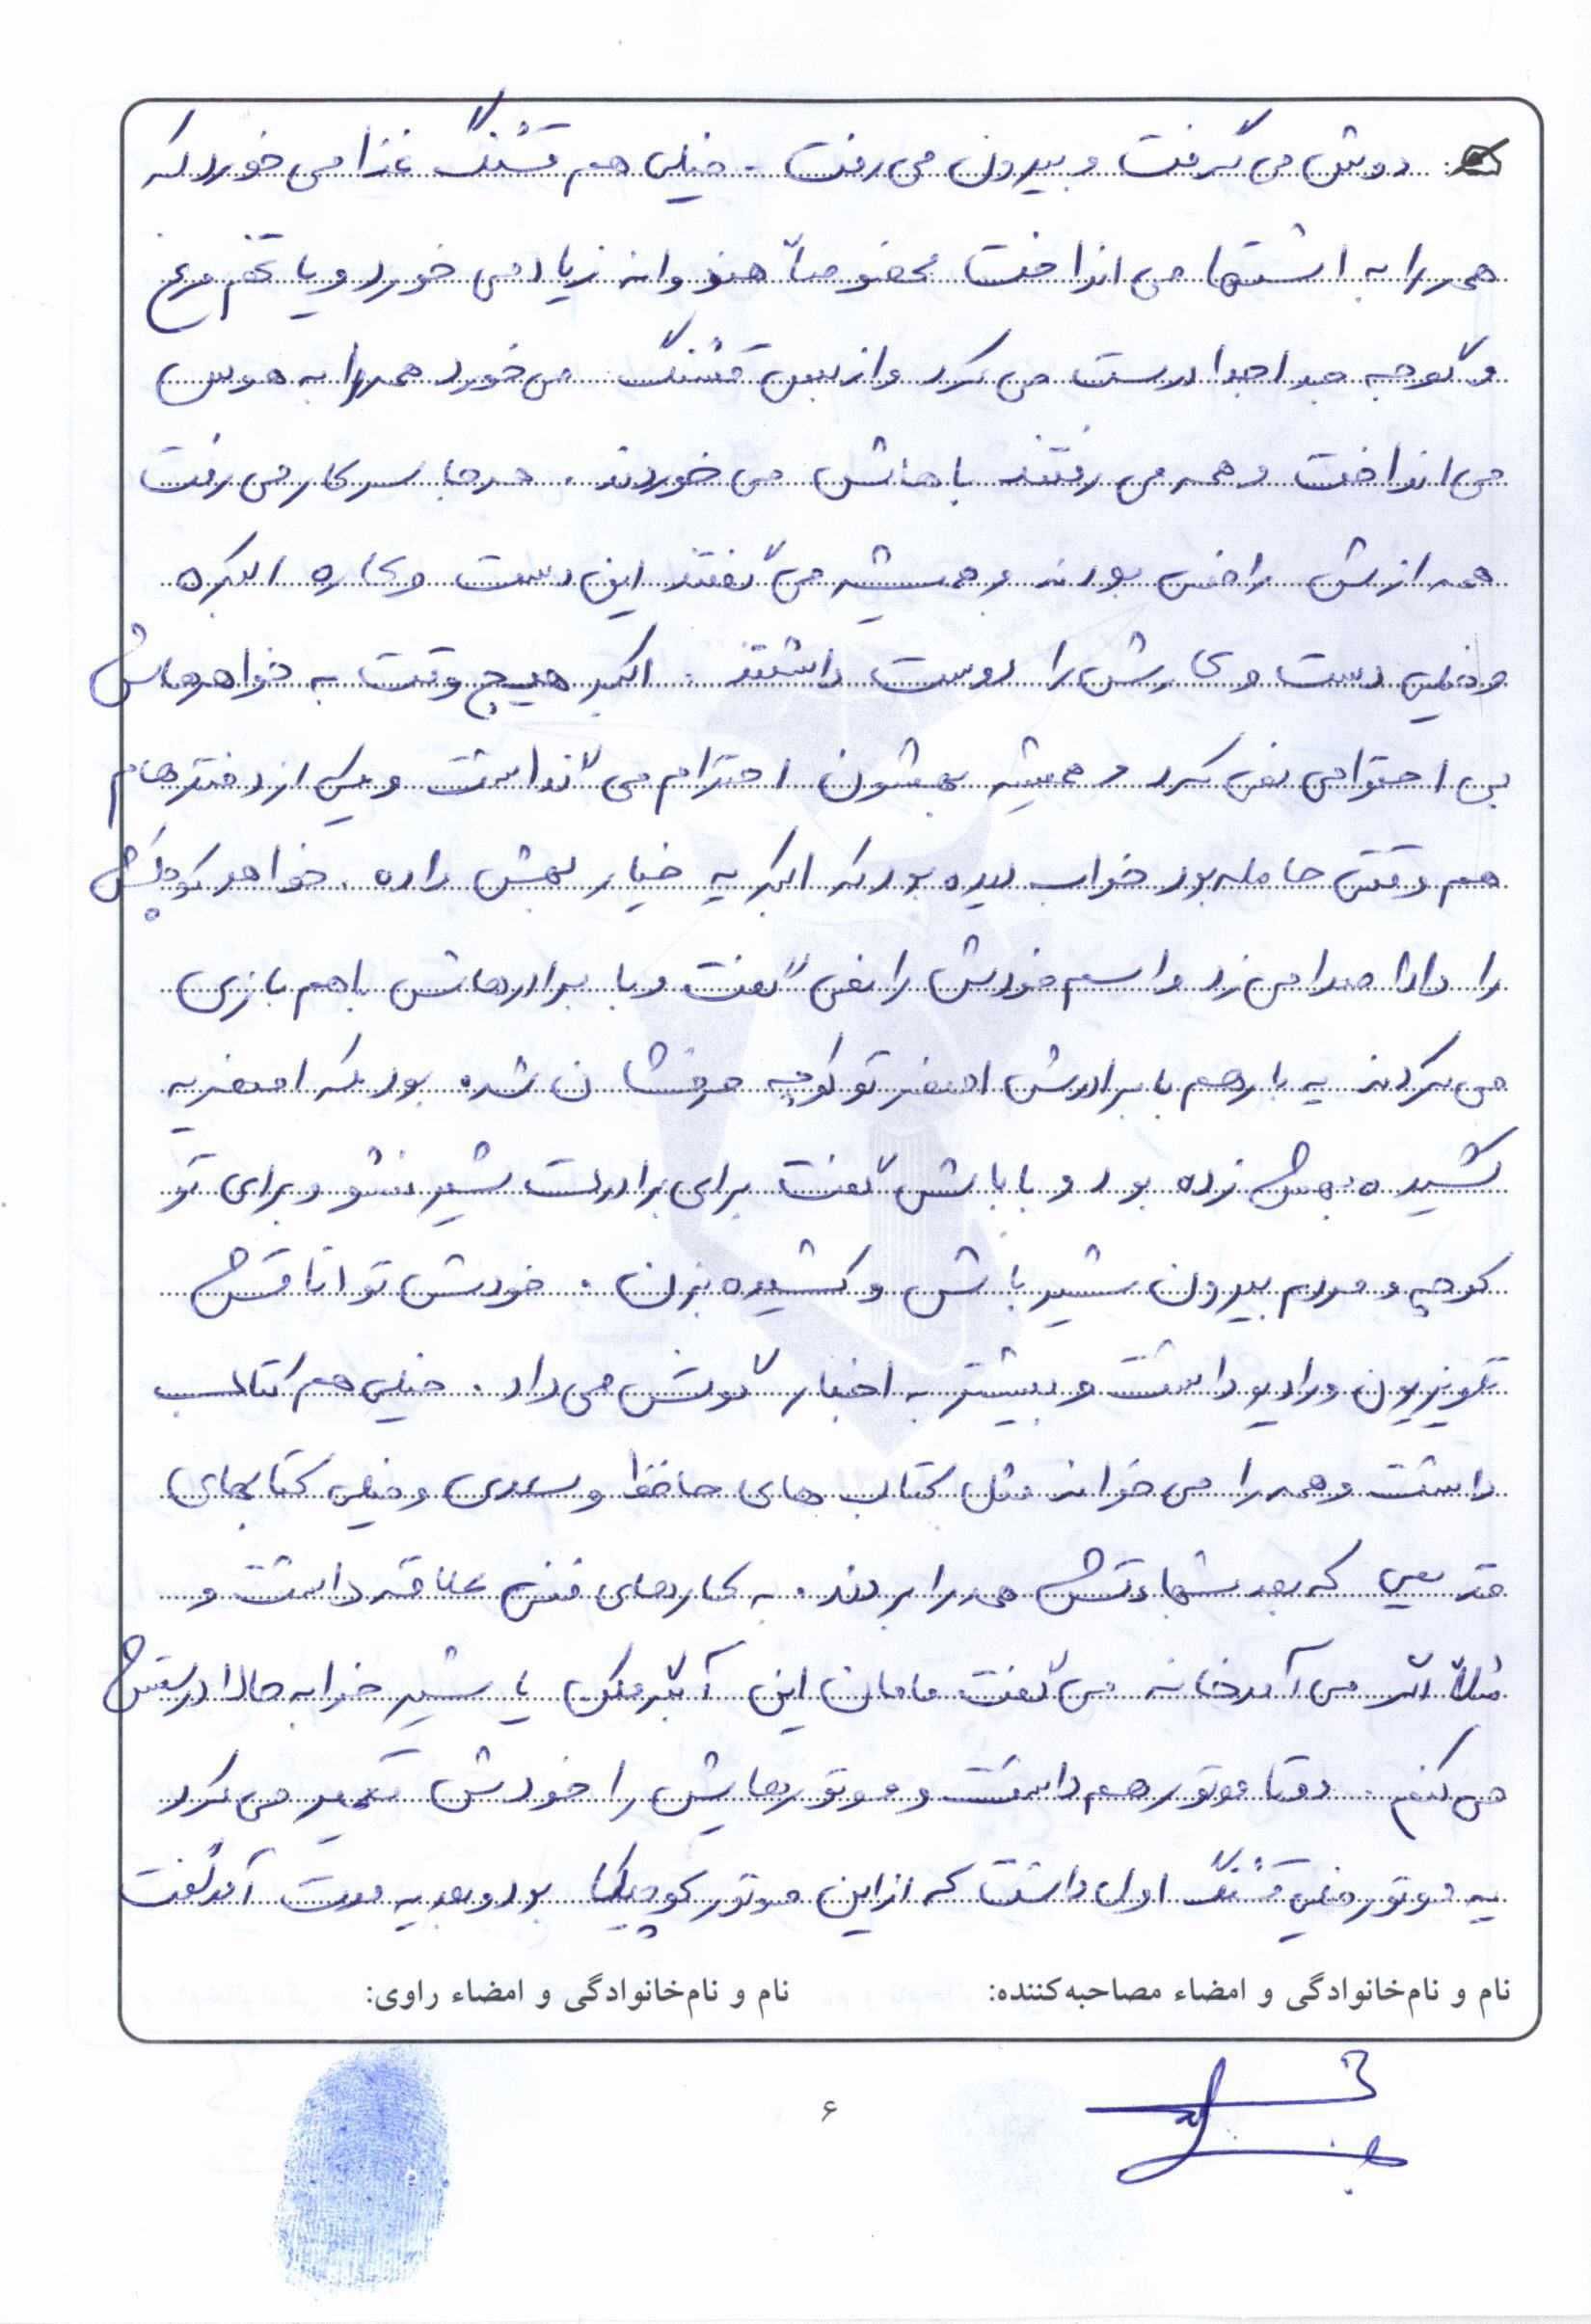 دوش می گرفت و بیرون می رفت - خیلی هم قشنگ غذا می خورد که
همه را به اشتها می انداخت مخصوصاً هندوانه زیاد می خورد و یا تخم مرغ
و گوجه جدا جدا درست می کرد و از بس قشنگ می خورد همه را به هوس
می انداخت و همه می رفتند باهاش می خوردند . هرجا سر کار می رفت
همه ازش راضی بودند و همیشه می گفتند این دست و کاره اکبره
و خیلی دست و کارش را دوست داشتند . اکبر هیچ وقت به خواهرهاش
بی احترامی نمی کرد و همیشه بهشون احترام می گذاشت و یکی از دخترهام
هم وقتی حامله بود خواب دیده بود که اکبر یه خیار بهش داده . خواهر کوچکش
را دادا صدا می زد و اسم خودش را نمی گفت و با برادرهاش باهم بازی
می کردند یه بار هم با برادرش اصغر تو کوچه حرفشان شده بود که اصغر یه
کشیده بهش زده بود و باباش گفت برای برادرت شیر نشو و برای تو
کوچه و مردم بیرون شیر باش و کشیده بزن . خودش تو اتاقش
تلویزیون و رادیو داشت و بیشتر به اخبار گوش می داد . خیلی هم کتاب
داشت و همه را می خواند مثل کتاب های حافظ و سعدی و خیلی کتابهای
قدیمی که بعد شهادتش همه را بردند . به کارهای فنی علاقه داشت و
مثلاً اگر می آمد خانه می گفت مامان این آبگرمکن یا شیر خرابه حالا درستش
می کنم . دو تا موتور هم داشت و موتورهایش را خودش تعمیر می کرد
یه موتور خیلی قشنگ اول داشت که از این موتور کوچیکا بود و بعد یه مدت آمد گفت
نام و نام‌خانوادگی و امضاء مصاحبه‌کننده: نام و نام‌خانوادگی و امضاء راوی:
۶